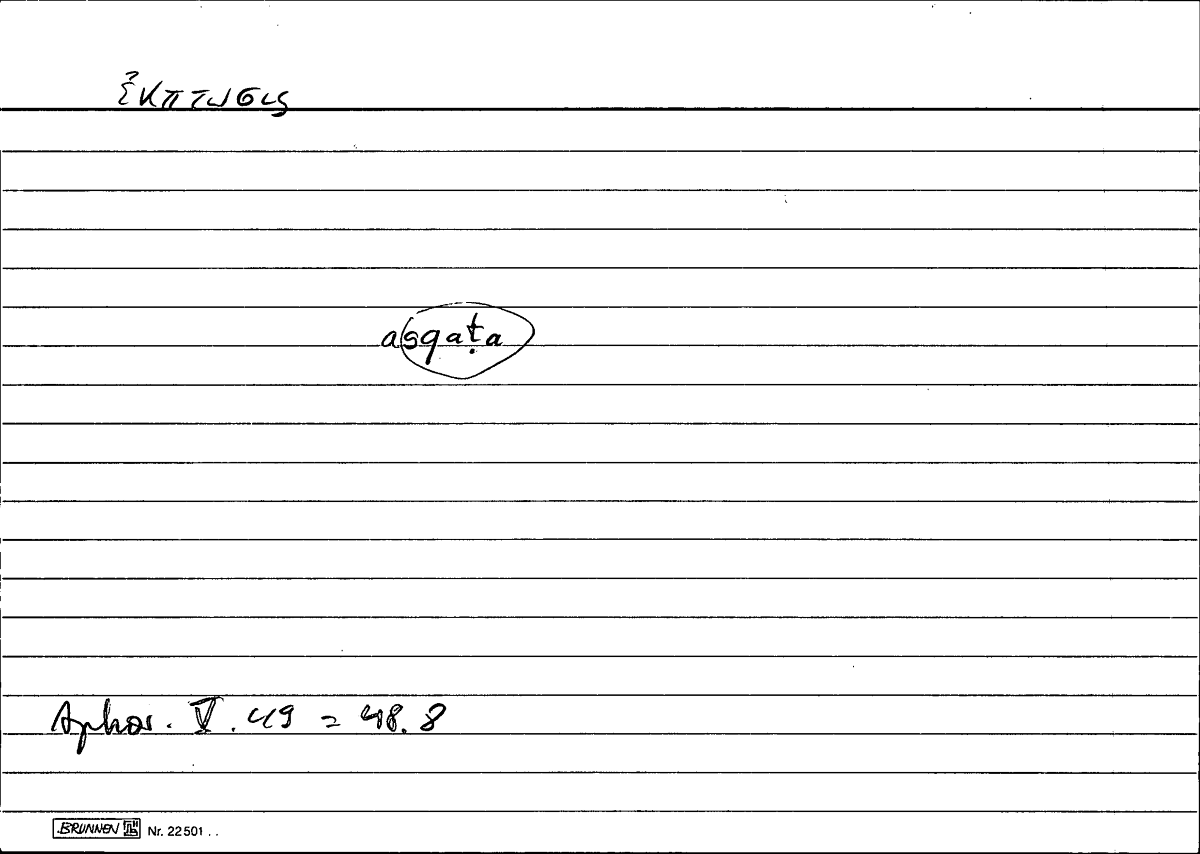 ἔκπτωσις
asqaṭa
Aphor. V. 49 = 48. 8
BRUNNEN Nr. 22501 . .